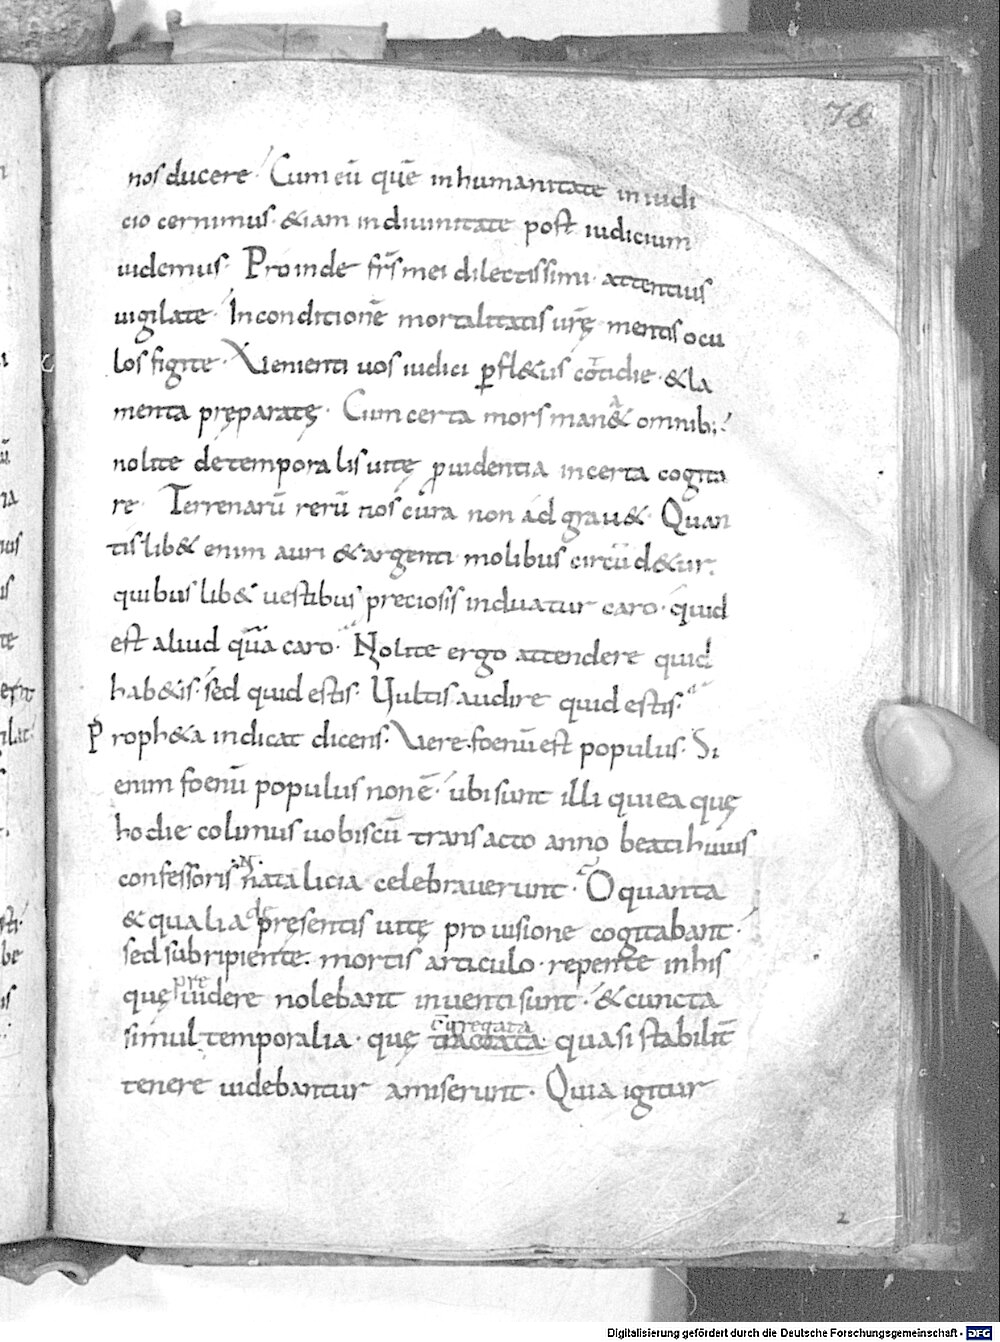 78
nos ducere. Cum eū quē in humanitate in iudi
cio cernimus. &iam in diuinitate post iudicium
uidemus. Proinde frs̄ mei dilectissimi. attentius
uigilate. In conditionē mortalitatis urę̄ mentis ocu
los figite. Venienti uos iudici ꝑ fl&us cotidie. & la
menta pręparate. Cum certa mors man& omnib;.
nolite de temporalis uitę ꝓuidentia incerta cogita
re. Terrenarū rerū nos cura non adgrau&. Quan
tislib& enim auri & argenti molibus circūd&ur.
quibuslib& uestibus preciosis induatur caro. quid
est aliud quā caro. Nolite ergo attendere quid
hab&is. sed quid estis. Vultis audire quid estis.
Proph&a indicat dicens. Vere foenū est populus. Si
enim foenū populus non ē. ubi sunt illi qui ea quę
hodie colimus uobiscū transacto anno beati huius
confessoris natalicia celebrauerunt. O quanta
& qualia de pręsentis uitę prouisione cogitabant.
sed subripiente. mortis articulo. repente in his
quę preuidere nolebant inuenti sunt. & cuncta
congregata
simul temporalia. quę tractata quasi stabilit̄
tenere uidebantur amiserunt. Quia igitur
2
Digitalisierung gefördert durch die Deutsche Forschungsgemeinschaft - DFG